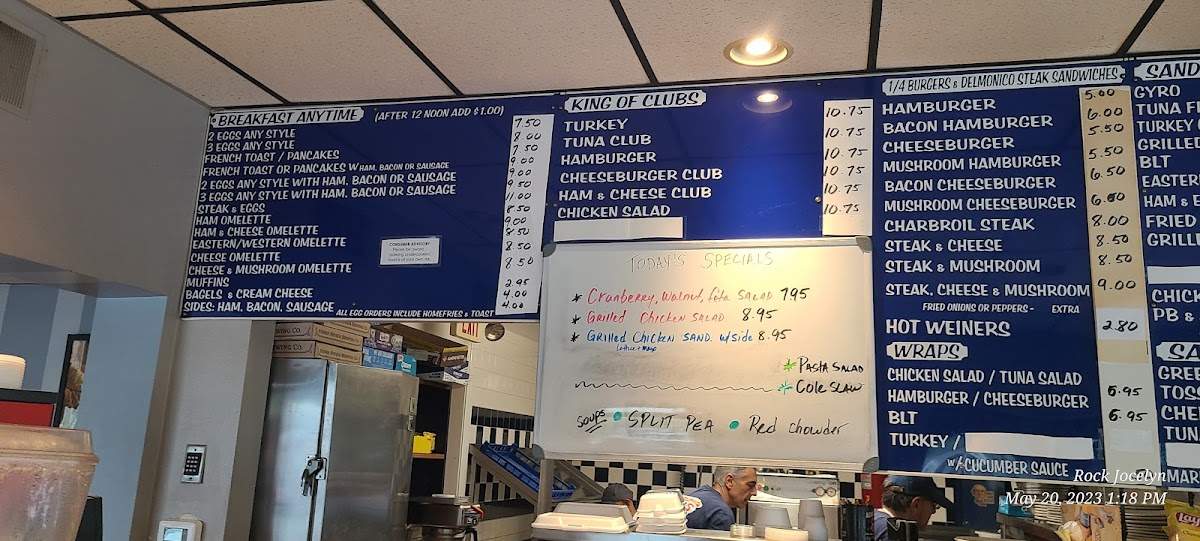 BREAKFAST ANYTIME (AFTER 12 NOON ADD $1.00)
2 EGGS ANY STYLE 7.50
3 EGGS ANY STYLE 8.00
FRENCH TOAST / PANCAKES 7.50
FRENCH TOAST OR PANCAKES W HAM, BACON OR SAUSAGE 9.00
2 EGGS ANY STYLE WITH HAM, BACON OR SAUSAGE 9.00
3 EGGS ANY STYLE WITH HAM, BACON OR SAUSAGE 9.50
STEAK & EGGS 11.00
HAM OMELETTE 8.50
HAM & CHEESE OMELETTE 9.00
EASTERN/WESTERN OMELETTE 8.50
CHEESE OMELETTE 8.50
CHEESE & MUSHROOM OMELETTE 8.50
MUFFINS 2.95
BAGELS & CREAM CHEESE 4.00
SIDES: HAM, BACON, SAUSAGE 4.00
ALL EGG ORDERS INCLUDE HOMEFRIES & TOAST
CONSUMER ADVISORY
KING OF CLUBS
TURKEY 10.75
TUNA CLUB 10.75
HAMBURGER 10.75
CHEESEBURGER CLUB 10.75
HAM & CHEESE CLUB 10.75
CHICKEN SALAD 10.75
TODAY'S SPECIALS
* Cranberry, Walnut, feta SALAD 795
* Grilled Chicken SALAD 8.95
* GRilled Chicken SAND. w/side 8.95
lettuce + Mayo
* PASTA SALAD
* Cole SLAW
Soups • SPLIT PEA • Red chowder
1/4 BURGERS & DELMONICO STEAK SANDWICHES
HAMBURGER 5.00
BACON HAMBURGER 6.00
CHEESEBURGER 5.50
MUSHROOM HAMBURGER 5.50
BACON CHEESEBURGER 6.50
MUSHROOM CHEESEBURGER 6.00
CHARBROIL STEAK 8.00
STEAK & CHEESE 8.50
STEAK & MUSHROOM 8.50
STEAK, CHEESE & MUSHROOM 9.00
FRIED ONIONS OR PEPPERS - EXTRA
HOT WEINERS 2.80
WRAPS
CHICKEN SALAD / TUNA SALAD
HAMBURGER / CHEESEBURGER 6.95
BLT 6.95
TURKEY /
W/CUCUMBER SAUCE
SAND
GYRO
TUNA
TURKEY
GRILLE
BLT
EASTER
HAM &
FRIED
GRILL
CHICK
PB &
SA
GREE
TOSS
CHE
TUN
MAR
EXIT
Lay's
Rock Jocelyn
May 20, 2023 1:18 PM